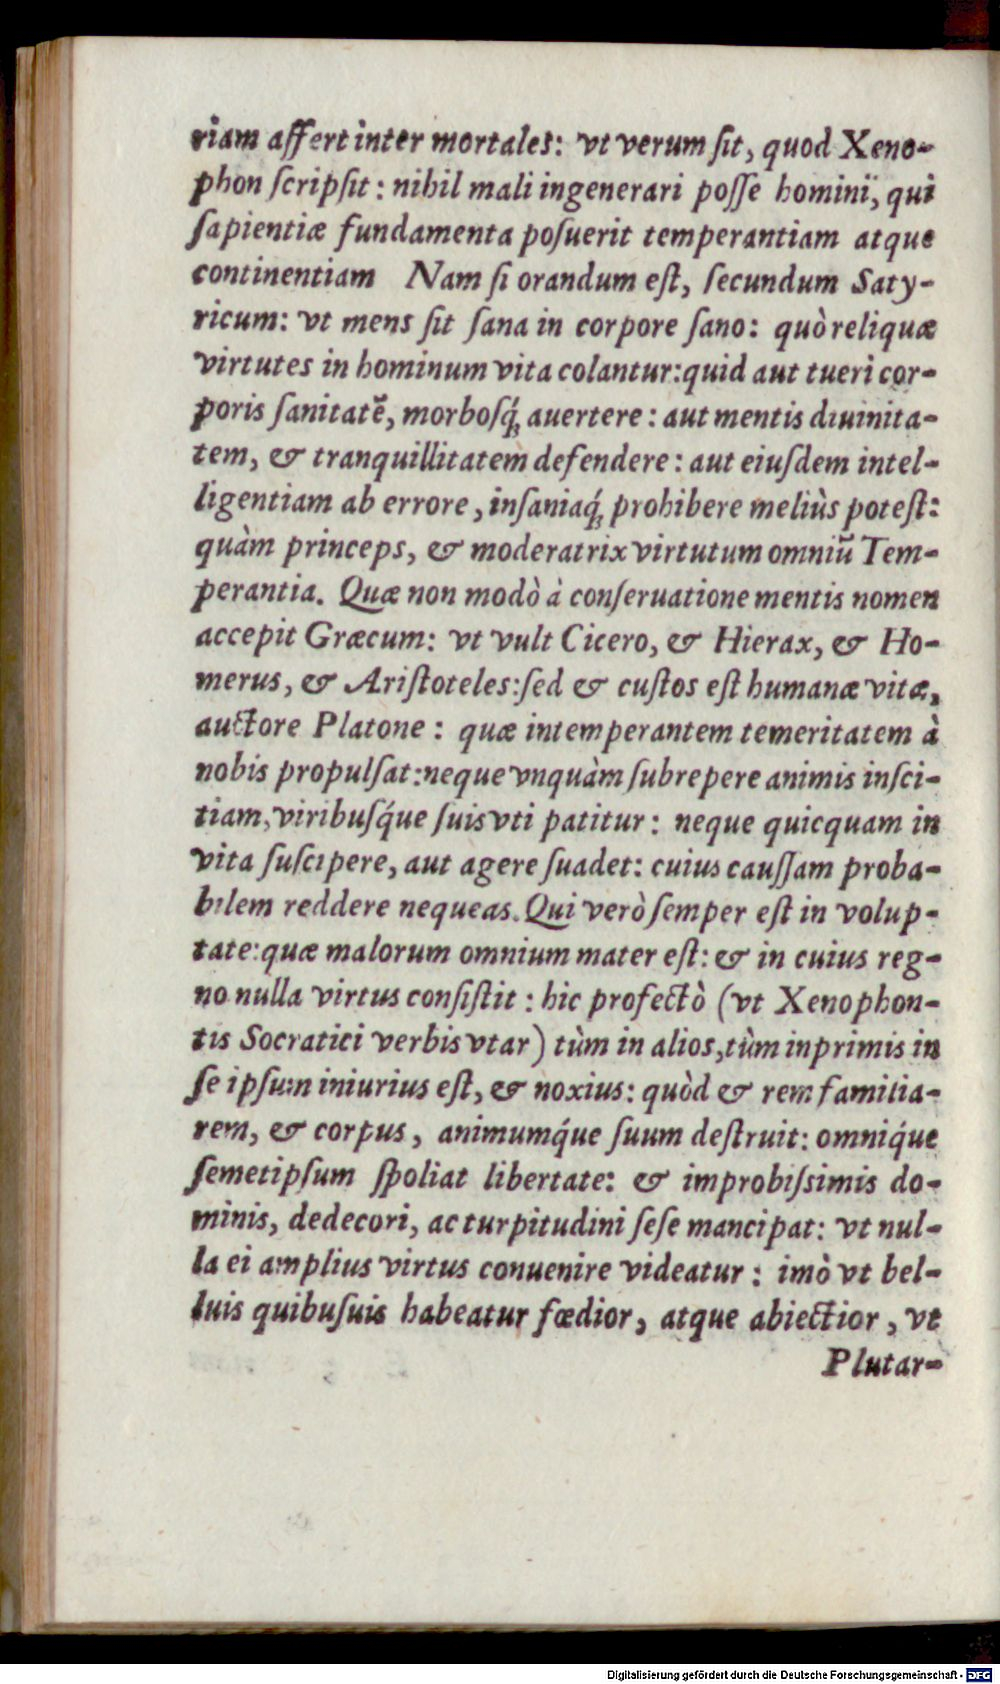 riam affert inter mortales: vt verum ſit, quod Xeno-
phon ſcripſit: nihil mali ingenerari poſſe homini, qui
ſapientiæ fundamenta poſuerit temperantiam atque
continentiam Nam ſi orandum eſt, ſecundum Saty-
ricum: vt mens ſit ſana in corpore ſano: quò reliquæ
virtutes in hominum vita colantur: quid aut tueri cor-
poris ſanitatē, morboſq́; auertere: aut mentis diuinita-
tem, & tranquillitatem defendere: aut eiuſdem intel-
ligentiam ab errore, inſaniaq́; prohibere meliùs poteſt:
quàm princeps, & moderatrix virtutum omniū Tem-
perantia. Quæ non modò à conſeruatione mentis nomen
accepit Græcum: vt vult Cicero, & Hierax, & Ho-
merus, & Ariſtoteles: ſed & cuſtos eſt humanæ vitæ,
auctore Platone: quæ intemperantem temeritatem à
nobis propulſat: neque vnquàm ſubrepere animis inſci-
tiam, viribuſq́ue ſuis vti patitur: neque quicquam in
vita ſuſcipere, aut agere ſuadet: cuius cauſſam proba-
bilem reddere nequeas. Qui verò ſemper eſt in volup-
tate: quæ malorum omnium mater eſt: & in cuius reg-
no nulla virtus conſiſtit: hic profectò (vt Xenophon-
tis Socratici verbis vtar) tùm in alios, tùm inprimis in
ſe ipſum iniurius eſt, & noxius: quòd & rem familia-
rem, & corpus, animumq́ue ſuum deſtruit: omniq́ue
ſemetipſum ſpoliat libertate: & improbiſsimis do-
minis, dedecori, ac turpitudini ſeſe mancipat: vt nul-
la ei amplius virtus conuenire videatur: imò vt bel-
luis quibuſuis habeatur fœdior, atque abiectior, vt
Plutar-
Digitalisierung gefördert durch die Deutsche Forschungsgemeinschaft - DFG